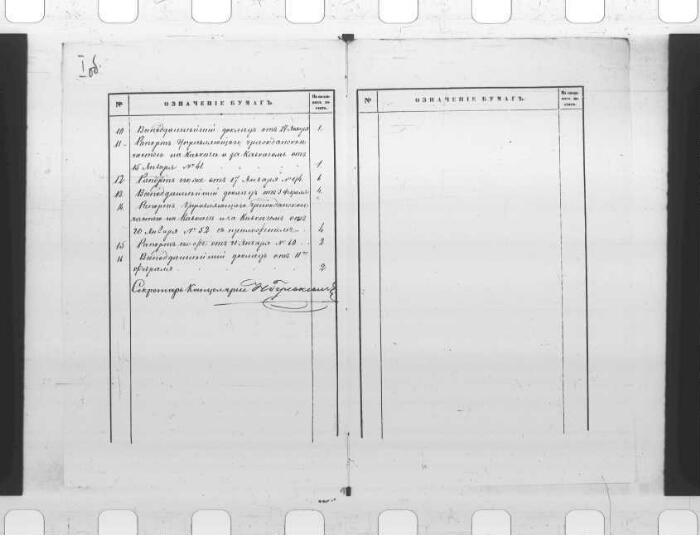 I об.
№ ОЗНАЧЕНІЕ БУМАГЪ.
№ ОЗНАЧЕНІЕ БУМАГЪ.
10 Всеподданнѣйшій докладъ отъ 29 Января 1
11 Рапортъ Управляющаго гражданскою
частью на Кавказѣ и за Кавказомъ отъ
15 Января № 41 1
12 Рапортъ его же отъ 17 Января 6
13 Всеподданнѣйшій докладъ отъ 3 Февраля 4
14 Рапортъ Управляющаго гражданскою
частью на Кавказѣ и за Кавказомъ отъ
20 Января № 52 съ приложеніемъ 4
15 Рапортъ его же отъ Января № 2
16 Всеподданнѣйшій докладъ отъ 11го
Февраля 2
Секретарь Канцеляріи